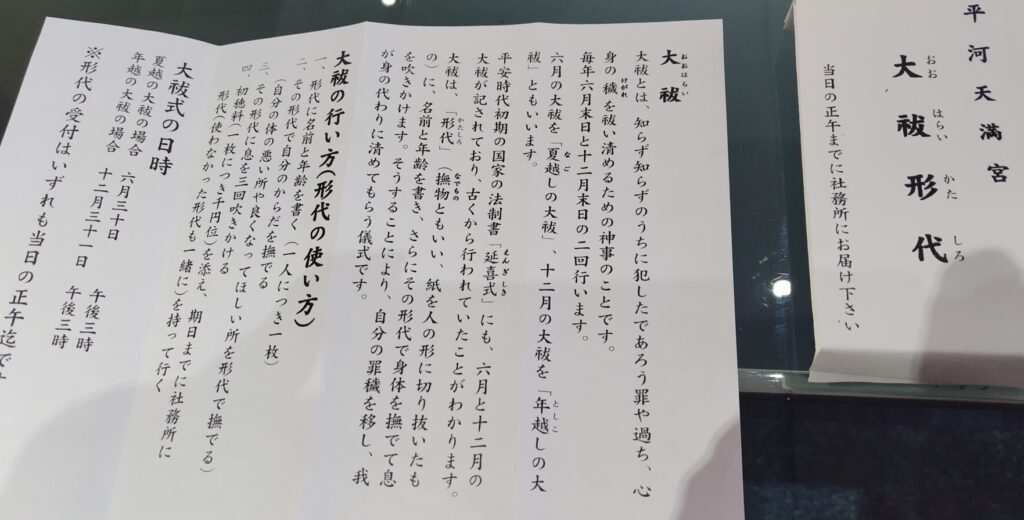 平河天満宮
おおはらいかたしろ
大祓形代
当日の正午までに社務所にお届け下さい
おおはらい
大祓
大祓とは、知らず知らずのうちに犯したであろう罪や過ち、心
けがれ
身の穢を祓い清めるための神事のことです。
毎年六月末日と十二月末日の二回行います。
なご としこ
六月の大祓を「夏越しの大祓」、十二月の大祓を「年越しの大
祓」ともいいます。
えんぎしき
平安時代初期の国家の法制書「延喜式」にも、六月と十二月の
大祓が記されており、古くから行われていたことがわかります。
かたしろ なでもの
大祓は、「形代」(撫物ともいい、紙を人の形に切り抜いたも
の)に、名前と年齢を書き、さらにその形代で身体を撫でて息
を吹きかけます。そうすることにより、自分の罪穢を移し、我
が身の代わりに清めてもらう儀式です。
大祓の行い方(形代の使い方)
一、形代に名前と年齢を書く(一人につき一枚)
二、その形代で自分のからだを撫でる
(自分の体の悪い所や良くなってほしい所を形代で撫でる)
三、その形代に息を三回吹きかける
四、初穂料(一枚につき千円位)を添え、期日までに社務所に
形代(使わなかった形代も一緒に)を持って行く
大祓式の日時
夏越の大祓の場合 六月三十日 午後三時
年越の大祓の場合 十二月三十一日 午後三時
※形代の受付はいずれも当日の正午迄です